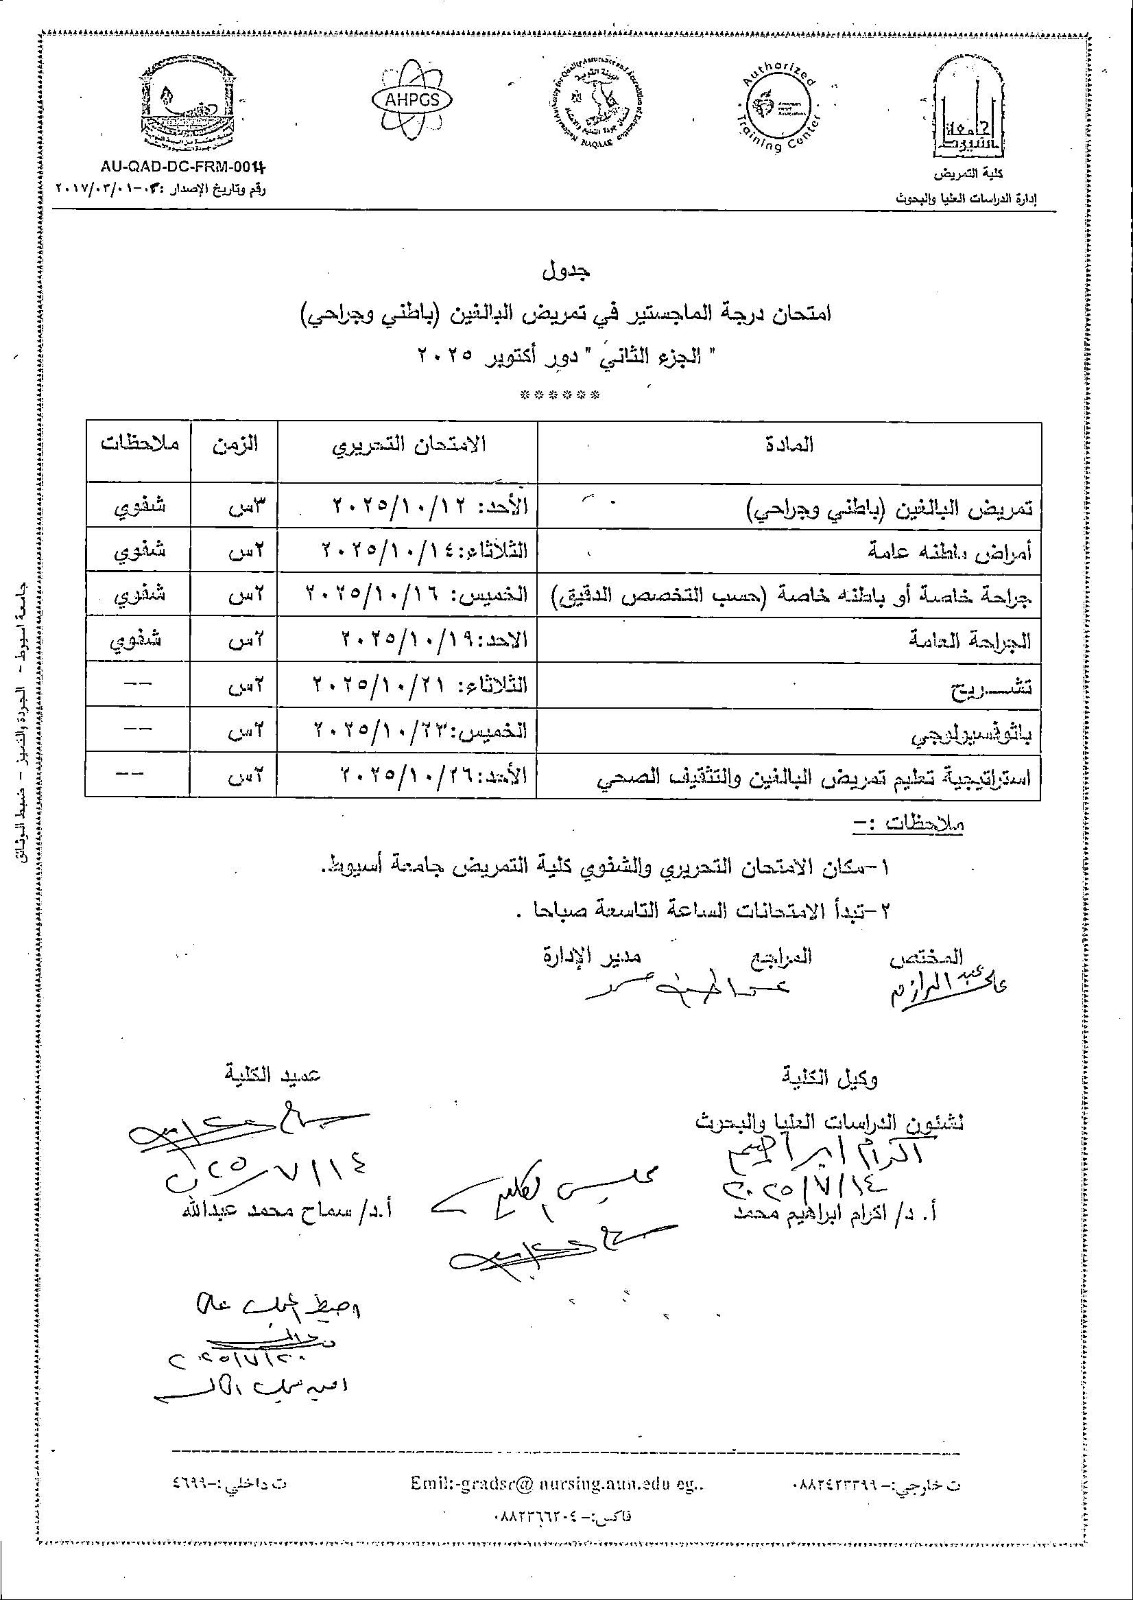 جامعة أسيوط
Authorized Training Center
AHPGS
كلية التمريض
إدارة الدراسات العليا والبحوث
AU-QAD-DC-FRM-0014
رقم وتاريخ الإصدار :٠٣-٢٠١٧/٠٣/٠١
جدول
امتحان درجة الماجستير في تمريض البالغين (باطني وجراحي)
" الجزء الثاني " دور أكتوبر ٢٠٢٥
******
المادة الامتحان التحريري الزمن ملاحظات
تمريض البالغين (باطني وجراحي) الأحد: ٢٠٢٥/١٠/١٢ ٣س شفوي
أمراض باطنه عامة الثلاثاء:٢٠٢٥/١٠/١٤ ٢س شفوي
جراحة خاصة أو باطنه خاصة (حسب التخصص الدقيق) الخميس: ٢٠٢٥/١٠/١٦ ٢س شفوي
الجراحة العامة الاحد:٢٠٢٥/١٠/١٩ ٢س شفوي
تشـــريح الثلاثاء: ٢٠٢٥/١٠/٢١ ٢س --
باثوفسيولوجي الخميس:٢٠٢٥/١٠/٢٣ ٢س --
استراتيجية تعليم تمريض البالغين والتثقيف الصحي الأحد:٢٠٢٥/١٠/٢٦ ٢س --
ملاحظات :-
١-مكان الامتحان التحريري والشفوي كلية التمريض جامعة أسيوط.
٢-تبدأ الامتحانات الساعة التاسعة صباحا .
المختص المراجع مدير الإدارة
وكيل الكلية عميد الكلية
لشئون الدراسات العليا والبحوث
اكرام ابراهيم
٢٠٢٥/٧/١٤ ٢٠٢٥/٧/١٤
أ. د/ اكرام ابراهيم محمد أ.د/ سماح محمد عبدالله
مجلس الكلية
٢٠٢٥/٧/٢٠
ت خارجي:-٠٨٨٢٤٢٣٣٩٩ Emil:-gradsr@ nursing.aun.edu eg.. ت داخلي:-٤٦٩٩
فاكس:-٠٨٨٢٣٦٦٢٠٤
جامعة اسيوط - الجودة والتميز - ضبط الوثائق